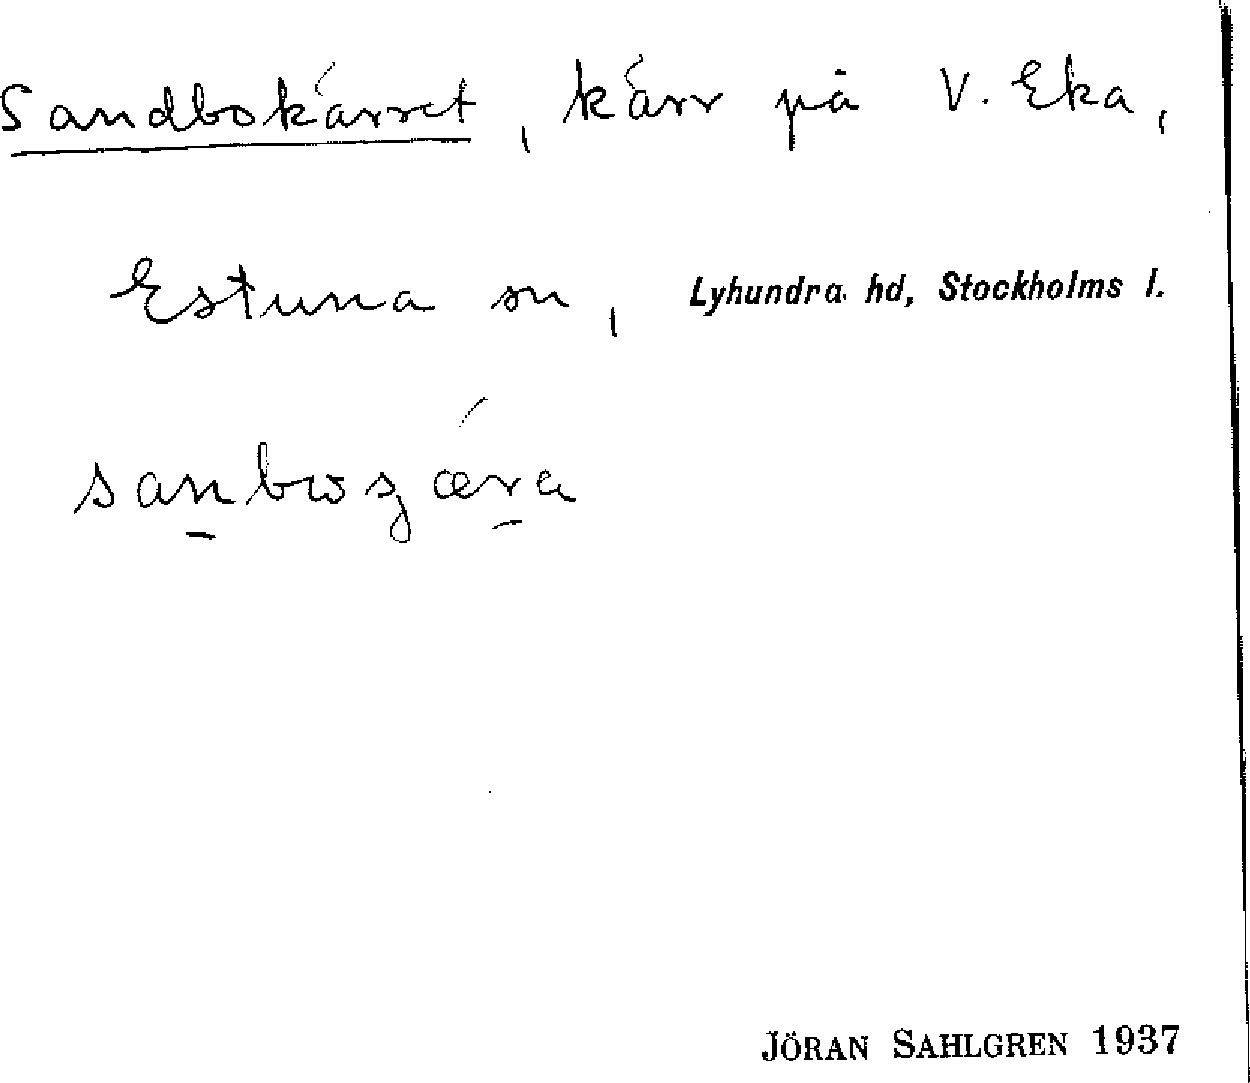 Sandbokärret, kärr på V. Eka,
Estuna sn, Lyhundra hd, Stockholms l.
JÖRAN SAHLGREN 1937